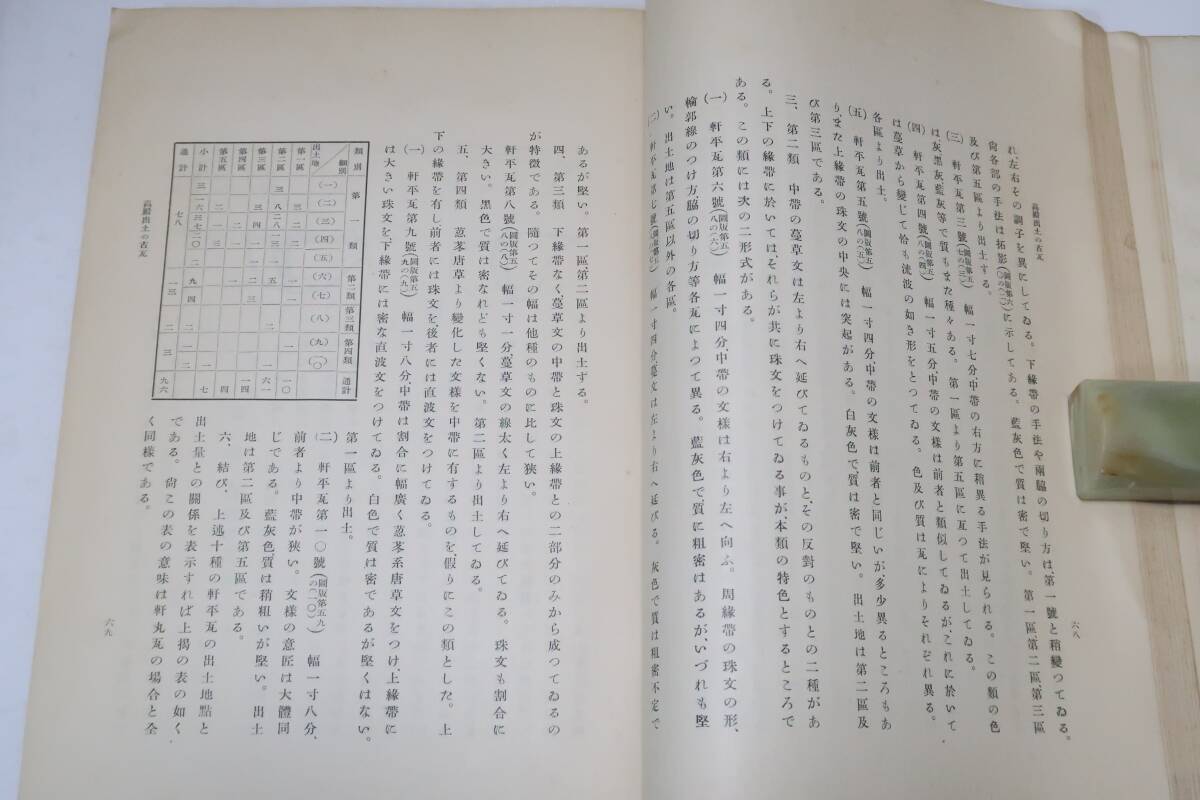 高麗出土の古瓦
六八
れ、左右その調子を異にしてゐる。下緣帶の手法や兩脇の切り方は、第一號と稍變つてゐる。
尙各部の手法は拓影(圖版第六〇の二)に示してある。藍灰色で質は密で堅い。第一區、第二區、第三區
及び第五區より出土する。
(三) 軒平瓦第三號(圖版第五七の三) 幅一寸七分、中帶の右方に稍異る手法が見られる。この類の色
は灰黑灰藍灰等で質もまた種々ある。第一區より第五區に亙つて出土してゐる。
(四) 軒平瓦第四號(圖版第五八の四) 幅一寸五分、中帶の文樣は前者と類似してゐるが、これに於いて
は蔓草から變じて恰も流波の如き形をとつてゐる。色及び質は瓦によりそれぞれ異る。
各區より出土。
(五) 軒平瓦第五號(圖版第五八の五) 幅一寸四分、中帶の文樣は前者と同じいが、多少異るところもあ
り、また上緣帶の珠文の中央には突起がある。白灰色で、質は密で堅い。出土地は第二區及
び第三區である。
三、第二類 中帶の蔓草文は左より右へ延びてゐるものと、その反對のものとの二種があ
る。上下の緣帶に於いてはそれらが共に珠文をつけてゐる事が、本類の特色とするところで
ある。この類には次の二形式がある。
(一) 軒平瓦第六號(圖版第五八の六) 幅一寸四分、中帶の文樣は右より左へ向ふ。周緣帶の珠文の形、
輪郭線のつけ方、脇の切り方等各瓦によつて異る。藍灰色で、質に粗密はあるが、いづれも堅
い。出土地は第五區以外の各區。
(二) 軒平瓦第七號 幅一寸四分、蔓文は左より右へ延びる。灰色で質は粗密不定で
あるが堅い。第一區第二區より出土する。
四、第三類 下緣帶なく、蔓草文の中帶と珠文の上緣帶との二部分のみから成つてゐるの
が特徵である。隨つてその幅は他種のものに比して狹い。
軒平瓦第八號(圖版第五八の八) 幅一寸一分、蔓草文の線太く左より右へ延びてゐる。珠文も割合に
大きい。黑色で質は密なれども堅くない。第二區より出土してゐる。
五、第四類 忍苳唐草より變化した文樣を中帶に有するものを、假りにこの類とした。上
下の緣帶を有し前者には珠文を、後者には直波文をつけてゐる。
(一) 軒平瓦第九號(圖版第五九の九) 幅一寸八分、中帶は割合に幅廣く忍苳系唐草文をつけ、上緣帶に
は大きい珠文を、下緣帶には密な直波文をつけてゐる。白色で質は密であるが堅くはない。
第一區より出土。
(二) 軒平瓦第一〇號(圖版第五九の一〇) 幅一寸八分、
前者より中帶が狹い。文樣の意匠は大體同
じである。藍灰色、質は稍粗いが堅い。出土
地は第二區及び第五區である。
六、結び、上述十種の軒平瓦の出土地點と
出土量との關係を表示すれば上揭の表の如く
である。尙この表の意味は軒丸瓦の場合と全
く同樣である。
類別 第一類 第二類 第三類 第四類 通計
出土地 類別 (一) (二) (三) (四) (五) (六) (七) (八) (九) (一〇)
第一區
第二區
第三區
第四區
第五區
小計
通計 七八 一三 二 三 九六
高麗出土の古瓦
六九